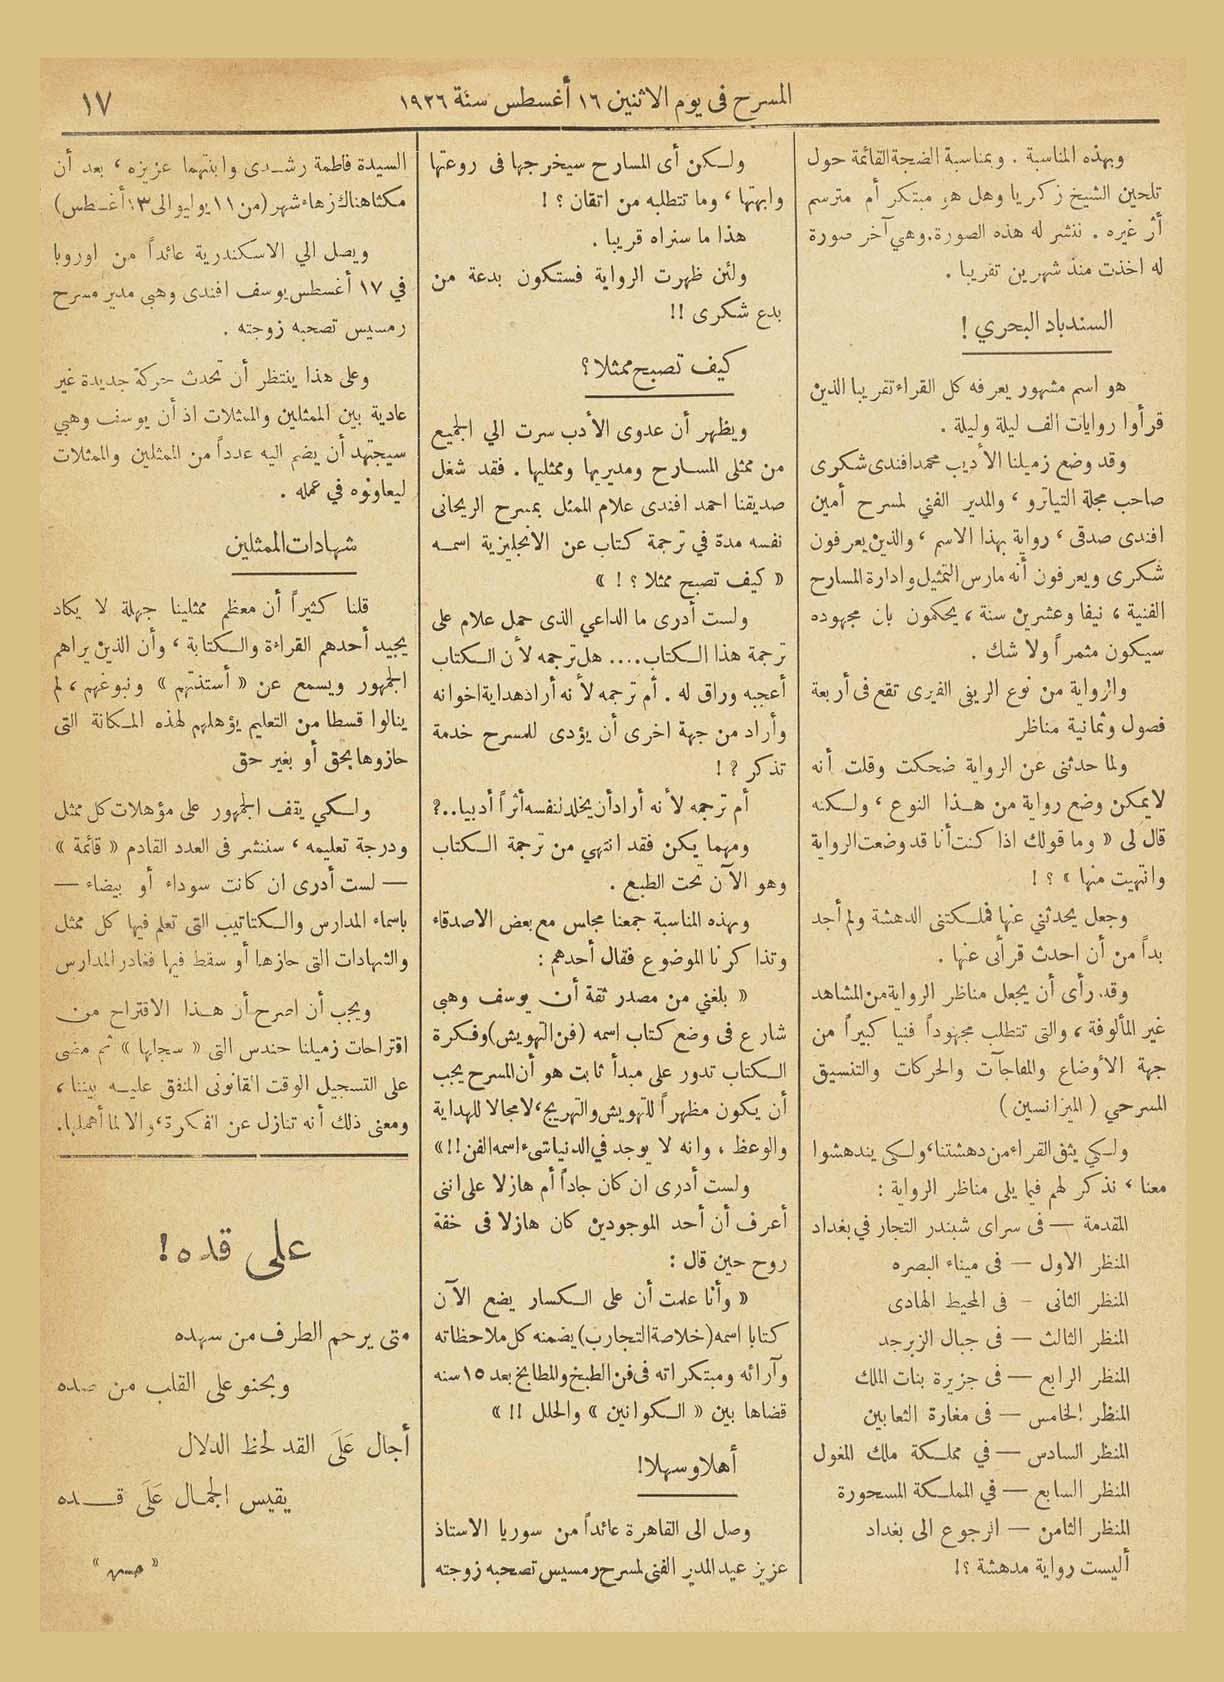 المسرح فى يوم الاثنين ١٦ أغسطس سنة ١٩٢٦
١٧
وبهذه المناسبة . وبمناسبة الضجة القائمة حول
تلحين الشيخ زكريا وهل هو مبتكر أم مترسم
أثر غيره . ننشر له هذه الصورة . وهي آخر صورة
له اخذت منذ شهرين تقريبا .
السندباد البحري !
هو اسم مشهور يعرفه كل القراء تقريبا الذين
قرأوا روايات الف ليلة وليلة .
وقد وضع زميلنا الأديب محمد افندى شكرى
صاحب مجلة التياترو ، والمدير الفني لمسرح أمين
افندى صدقى ، رواية بهذا الاسم ، والذين يعرفون
شكرى ويعرفون أنه مارس التمثيل وادارة المسارح
الفنية ، نيفا وعشرين سنة ، يحكمون بان مجهوده
سيكون مثمراً ولا شك .
والرواية من نوع الريفى الفيرى تقع فى أربعة
فصول وثمانية مناظر
ولما حدثنى عن الرواية ضحكت وقلت أنه
لايمكن وضع رواية من هذا النوع ، ولكنه
قال لى « وما قولك اذا كنت أنا قد وضعت الرواية
وانتهيت منها » ؟ !
وجعل يحدثني عنها فملكتنى الدهشة ولم أجد
بداً من أن احدث قرأنى عنها .
وقد رأى أن يجعل مناظر الرواية من المشاهد
غير المألوفة ، والتى تتطلب مجهوداً فنيا كبيراً من
جهة الأوضاع والمفاجآت والحركات والتنسيق
المسرحي ( الميزانسين )
ولكي يثق القراء من دهشتنا ، ولكى يندهشوا
معنا ، نذكر لهم فيما يلى مناظر الرواية :
المقدمة — فى سراى شبندر التجار في بغداد
المنظر الاول — فى ميناء البصره
المنظر الثانى - فى المحيط الهادى
المنظر الثالث — فى جبال الزبرجد
المنظر الرابع — فى جزيرة بنات الملك
المنظر الخامس — فى مغارة الثعابين
المنظر السادس — في مملكة ملك المغول
المنظر السابع — في المملكة المسحورة
المنظر الثامن — الرجوع الى بغداد
أليست رواية مدهشة ؟!
ولكن أى المسارح سيخرجها فى روعتها
وابهتها ، وما تتطلبه من اتقان ؟ !
هذا ما سنراه قريبا .
ولئن ظهرت الرواية فستكون بدعة من
بدع شكرى !!
كيف تصبح ممثلا ؟
ويظهر أن عدوى الأدب سرت الي الجميع
من ممثلى المسارح ومديريها وممثليها . فقد شغل
صديقنا احمد افندى علام الممثل بمسرح الريحانى
نفسه مدة في ترجمة كتاب عن الانجليزية اسمه
« كيف تصبح ممثلا ؟ ! »
ولست أدرى ما الداعي الذى حمل علام على
ترجمة هذا الكتاب .... هل ترجمه لأن الكتاب
أعجبه وراق له . أم ترجمه لأنه أراد هداية اخوانه
وأراد من جهة اخرى أن يؤدى للمسرح خدمة
تذكر ? !
أم ترجمه لأنه أراد أن يخلد لنفسه أثراً أدبيا .. ?
ومهما يكن فقد انتهي من ترجمة الكتاب
وهو الآن تحت الطبع .
وبهذه المناسبة جمعنا مجلس مع بعض الاصدقاء
وتذاكرنا الموضوع فقال أحدهم :
« بلغني من مصدر ثقة أن يوسف وهبى
شارع فى وضع كتاب اسمه (فن التهويش) وفكرة
الكتاب تدور على مبدأ ثابت هو أن المسرح يجب
أن يكون مظهراً للتهويش والتهريج ، لا مجالا للهداية
والوعظ ، وانه لا يوجد في الدنيا شىء اسمه الفن !! »
ولست أدرى ان كان جاداً أم هازلا على اننى
أعرف أن أحد الموجودين كان هازلا فى خفة
روح حين قال :
« وأنا علمت أن على الكسار يضع الآن
كتابا اسمه ( خلاصة التجارب ) يضمنه كل ملاحظاته
وآرائه ومبتكراته فى فن الطبخ والمطابخ بعد ١٥ سنه
قضاها بين « الكوانين » والحلل !! »
أهلا وسهلا !
وصل الى القاهرة عائداً من سوريا الاستاذ
عزيز عيد المدير الفنى لمسرح رمسيس تصحبه زوجته
السيدة فاطمة رشدى وابنتهما عزيزه ، بعد أن
مكثا هناك زهاء شهر ( من ١١ يوليو الى ١٣ أغسطس )
ويصل الي الاسكندرية عائداً من اوروبا
في ١٧ أغسطس يوسف افندى وهبي مدير مسرح
رمسيس تصحبه زوجته .
وعلى هذا ينتظر أن تحدث حركة جديدة غير
عادية بين الممثلين والممثلات اذ أن يوسف وهبي
سيجتهد أن يضم اليه عدداً من الممثلين والممثلات
ليعاونوه في عمله .
شهادات الممثلين
قلنا كثيراً أن معظم ممثلينا جهلة لا يكاد
يجيد أحدهم القراءة والكتابة ، وأن الذين يراهم
الجمهور ويسمع عن « أستذتهم » ونبوغهم ، لم
ينالوا قسطا من التعليم يؤهلهم لهذه المكانة التى
حازوها بحق أو بغير حق
ولكي يقف الجمهور على مؤهلات كل ممثل
ودرجة تعليمه ، سننشر فى العدد القادم « قائمة »
— لست أدرى ان كانت سوداء أو بيضاء —
باسماء المدارس والكتاتيب التى تعلم فيها كل ممثل
والشهادات التى حازها أو سقط فيها فغادر المدارس
ويجب أن اصرح أن هذا الاقتراح من
اقتراحات زميلنا حندس التى « سجلها » ثم مضى
على التسجيل الوقت القانونى المتفق عليه بيننا ،
ومعنى ذلك أنه تنازل عن الفكرة ، والا لما أهملها .
على قده !
متى يرحم الطرف من سهده
ويحنو على القلب من صده
أجال عَلَى القد لحظ الدلال
يقيس الجمال عَلَى قده
« حسن »